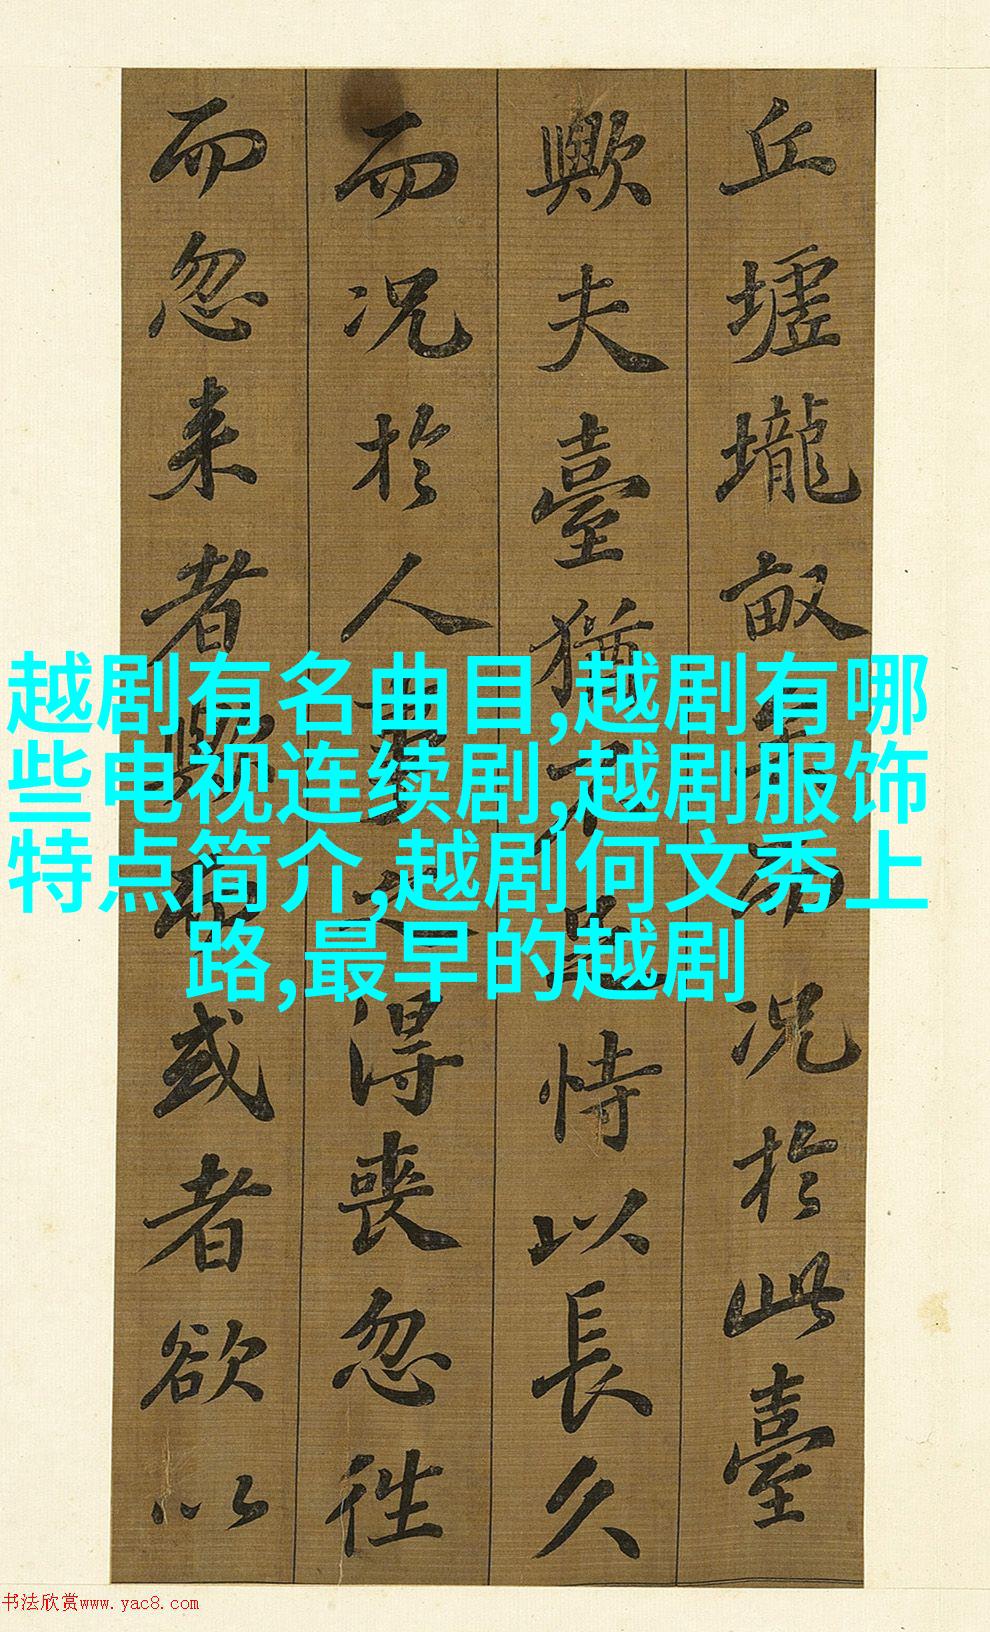 丘墟壠畝矣而况於此臺
歟夫臺猶不足恃以長久
而况於人事之得喪忽徃
而忽来者歟而或者欲以
越剧有名曲目,越剧有哪
些电视连续剧,越剧服饰
特点简介,越剧何文秀上
路,最早的越剧
书法欣赏www.yac8.com